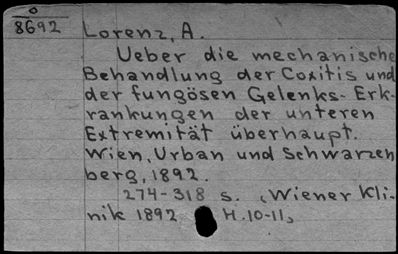 o
8692
Lorenz, A.
Ueber die mechanische
Behandlung der Coxitis und
der fungösen Gelenks-Erk-
rankungen der unteren
Extremität überhaupt.
Wien, Urban und Schwarzen
berg, 1892.
274-318 s. (Wiener Kli-
nik 1892 H. 10-11)